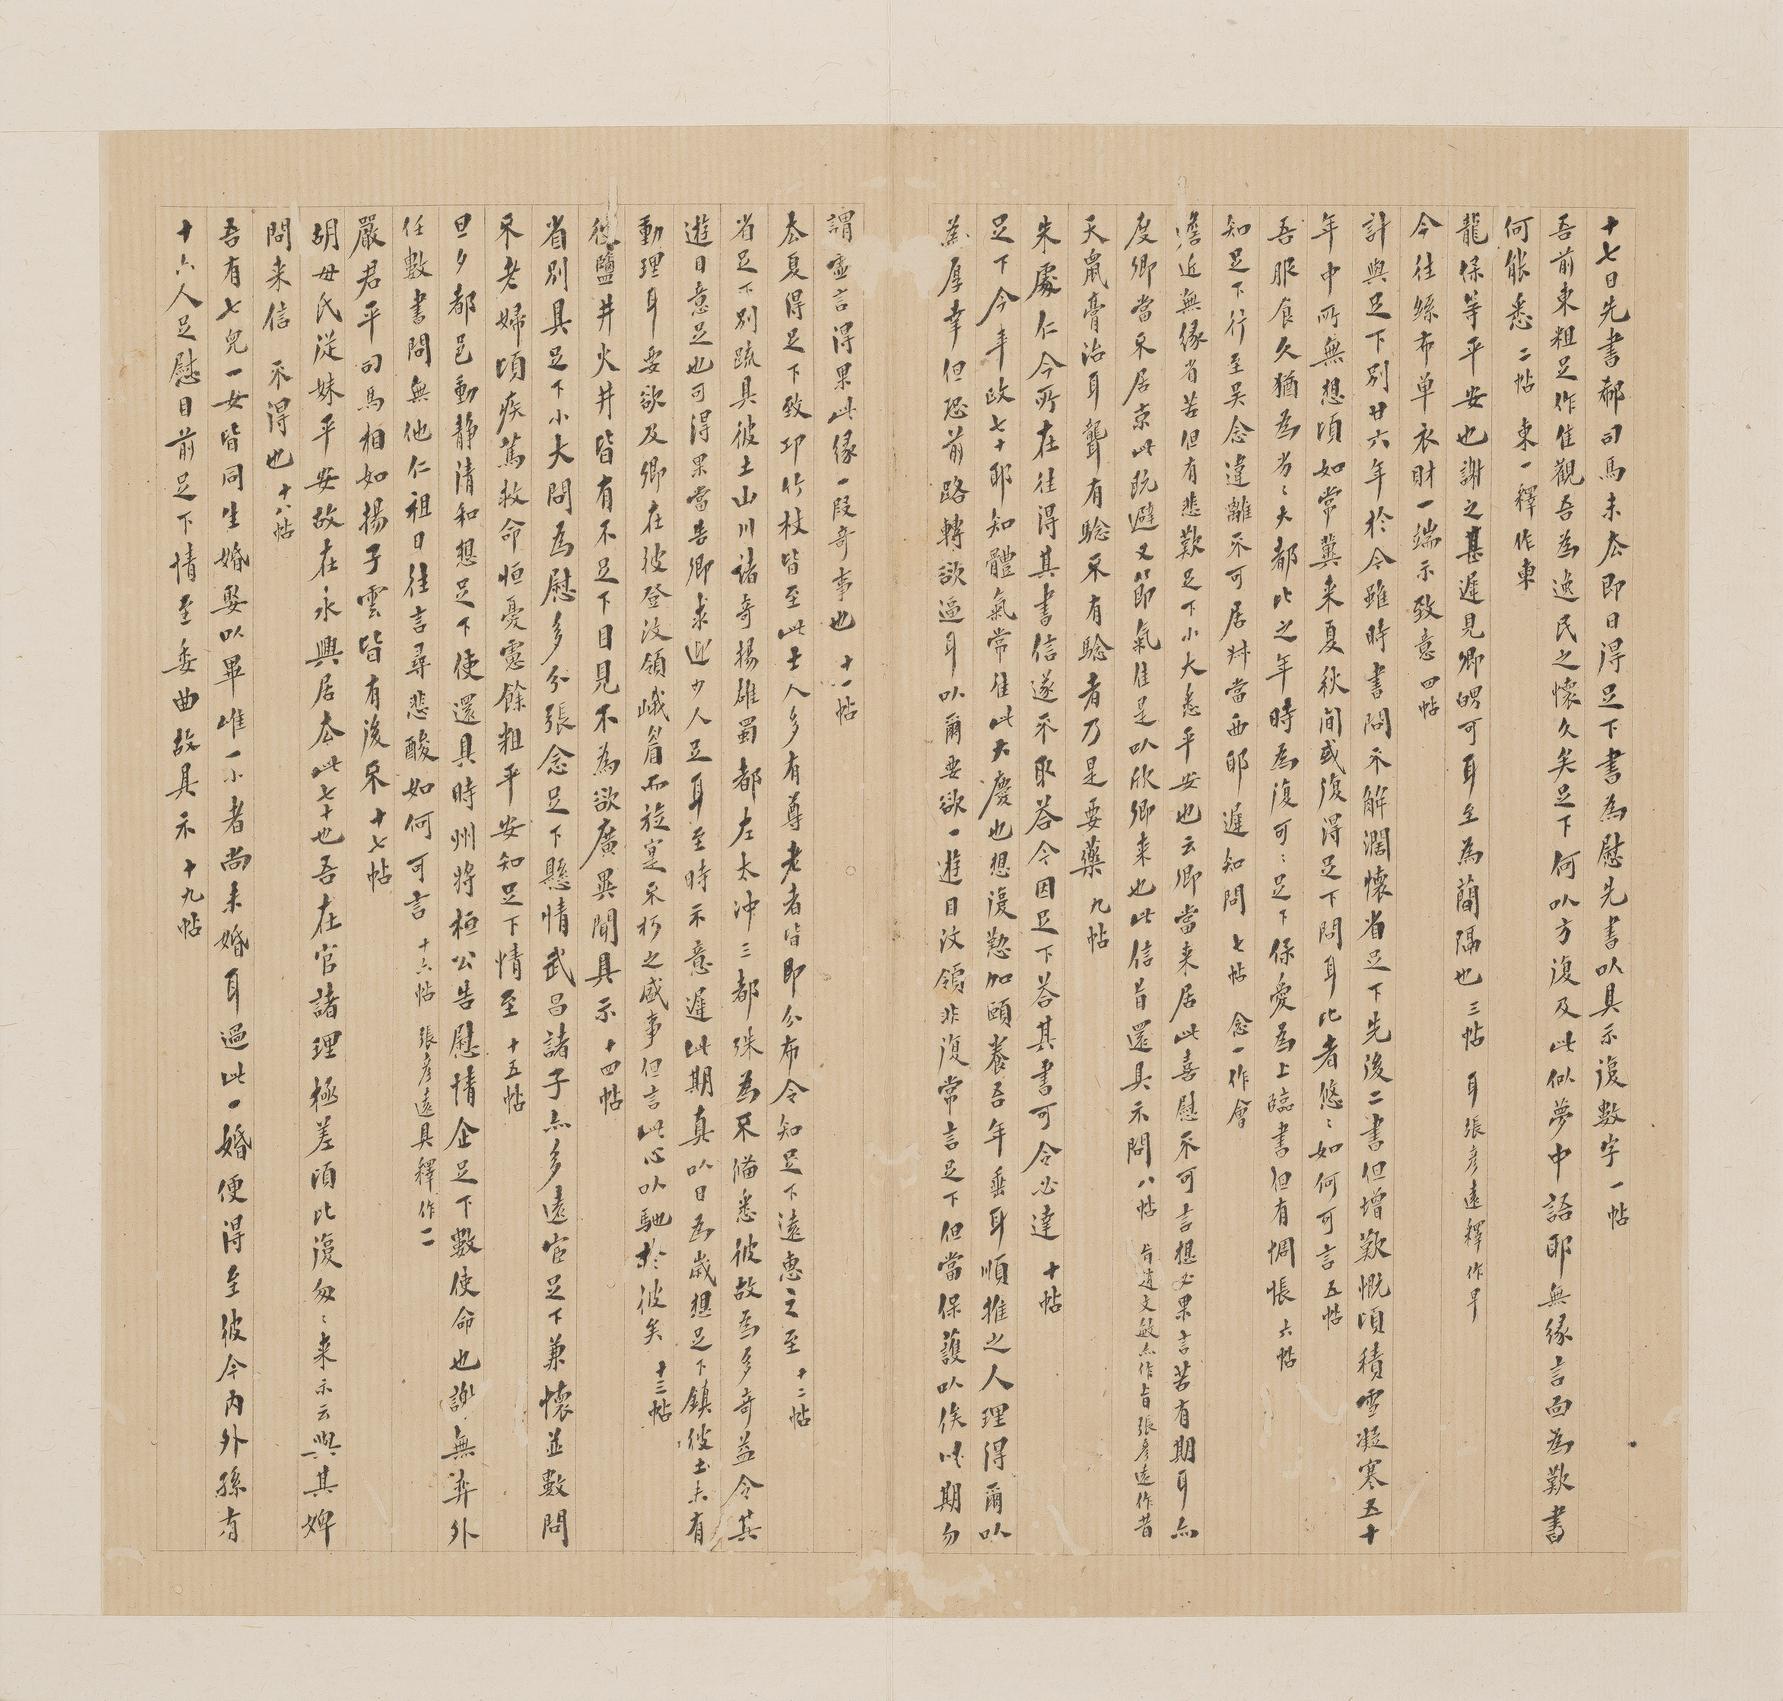 十七日先書郗司馬未去即日得足下書為慰先書以具示復數字 一帖
吾前東粗足作佳觀吾為逸民之懷久矣足下何以方復及此似夢中語耶無緣言面為歎書
何能悉 二帖 東一釋作車
龍保等平安也謝之甚遲見卿舅可耳至為簡隔也 三帖 耳張彥遠釋作早
今往絲布單衣財一端示致意 四帖
計與足下別廿六年於今雖時書問不解濶懷省足下先後二書但增歎慨頃積雪凝寒五十
年中所無想頃如常冀来夏秋間或復得足下問耳比者悠〻如何可言 五帖
吾服食久猶為劣〻大都比之年時為復可〻足下保愛為上臨書但有惆悵 六帖
知足下行至吳念違離不可居叔當西耶遲知問 七帖 念一作會
瞻近無緣省苦但有悲歎足下小大悉平安也云卿當来居此喜慰不可言想必果言苦有期耳亦
度卿當不居京此既避又節氣佳是以欣卿来也此信旨還具示問 八帖 旨趙文敏亦作旨張彥遠作昔
天鼠膏治耳聾有驗不有驗者乃是要藥 九帖
朱處仁今所在往得其書信遂不取荅今因足下荅其書可令必達 十帖
足下今年政七十耶知體氣常佳此大慶也想復懃加頤養吾年垂耳順推之人理得爾以
為厚幸但恐前路轉欲逼耳以爾要欲一遊目汶領非復常言足下但當保護以俟此期勿
謂虛言得果此緣一段奇事也 十一帖
去夏得足下致邛竹杖皆至此士人多有尊老者皆即分布令知足下遠惠之至 十二帖
省足下別疏具彼土山川諸奇揚雄蜀都左太沖三都殊為不備悉彼故為多奇益令其
遊目意足也可得果當告卿求迎少人足耳至時示意遲此期真以日為歲想足下鎮彼土未有
動理耳要欲及卿在彼登汶領峨眉而旋寔不朽之盛事但言此心以馳於彼矣 十三帖
彼鹽井火井皆有不足下目見不為欲廣異聞具示 十四帖
省別具足下小大問為慰多分張念足下懸情武昌諸子亦多遠宦足下兼懷並數問
不老婦頃疾篤救命恒憂慮餘粗平安知足下情至 十五帖
旦夕都邑動靜清和想足下使還具時州將桓公告慰情企足下數使命也謝無弈外
任數書問無他仁祖日往言尋悲酸如何可言 十六帖 張彥遠具釋作一一
嚴君平司馬相如揚子雲皆有後不 十七帖
胡毋氏從妹平安故在永興居去此七十也吾在官諸理極差頃比復匆〻来示云與其婢
問来信 不得也 十八帖
吾有七兒一女皆同生婚娶以畢唯一小者尚未婚耳過此一婚便得至彼今內外孫有
十六人足慰目前足下情至委曲故具示 十九帖